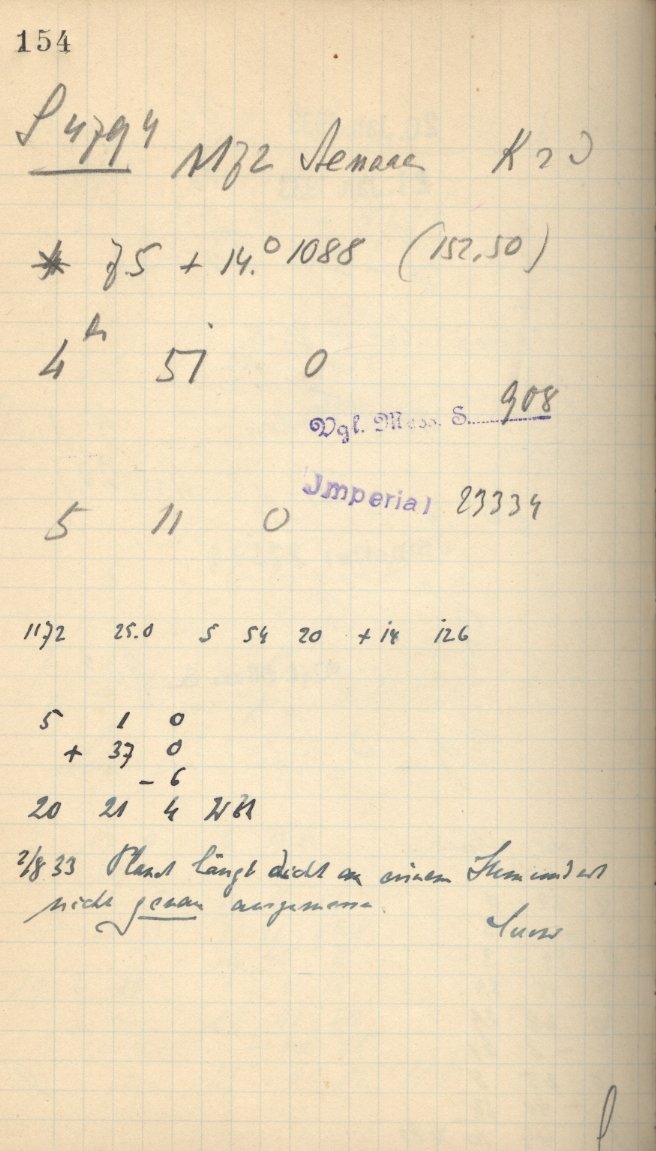 154
S 4794
1172 Aeneas K 20
75 + 14.° 1088 (152.50)
4 h 51 0
Vgl. Mess. S. 908
Imperial 23334
5 11 0
1172 25.0 5 54 20 + 14 126
5 1 0
+ 37 0
- 6
20 21 4
2/8 33 Planet hängt dicht an einem Stern und ist
nicht genau ausgemessen.